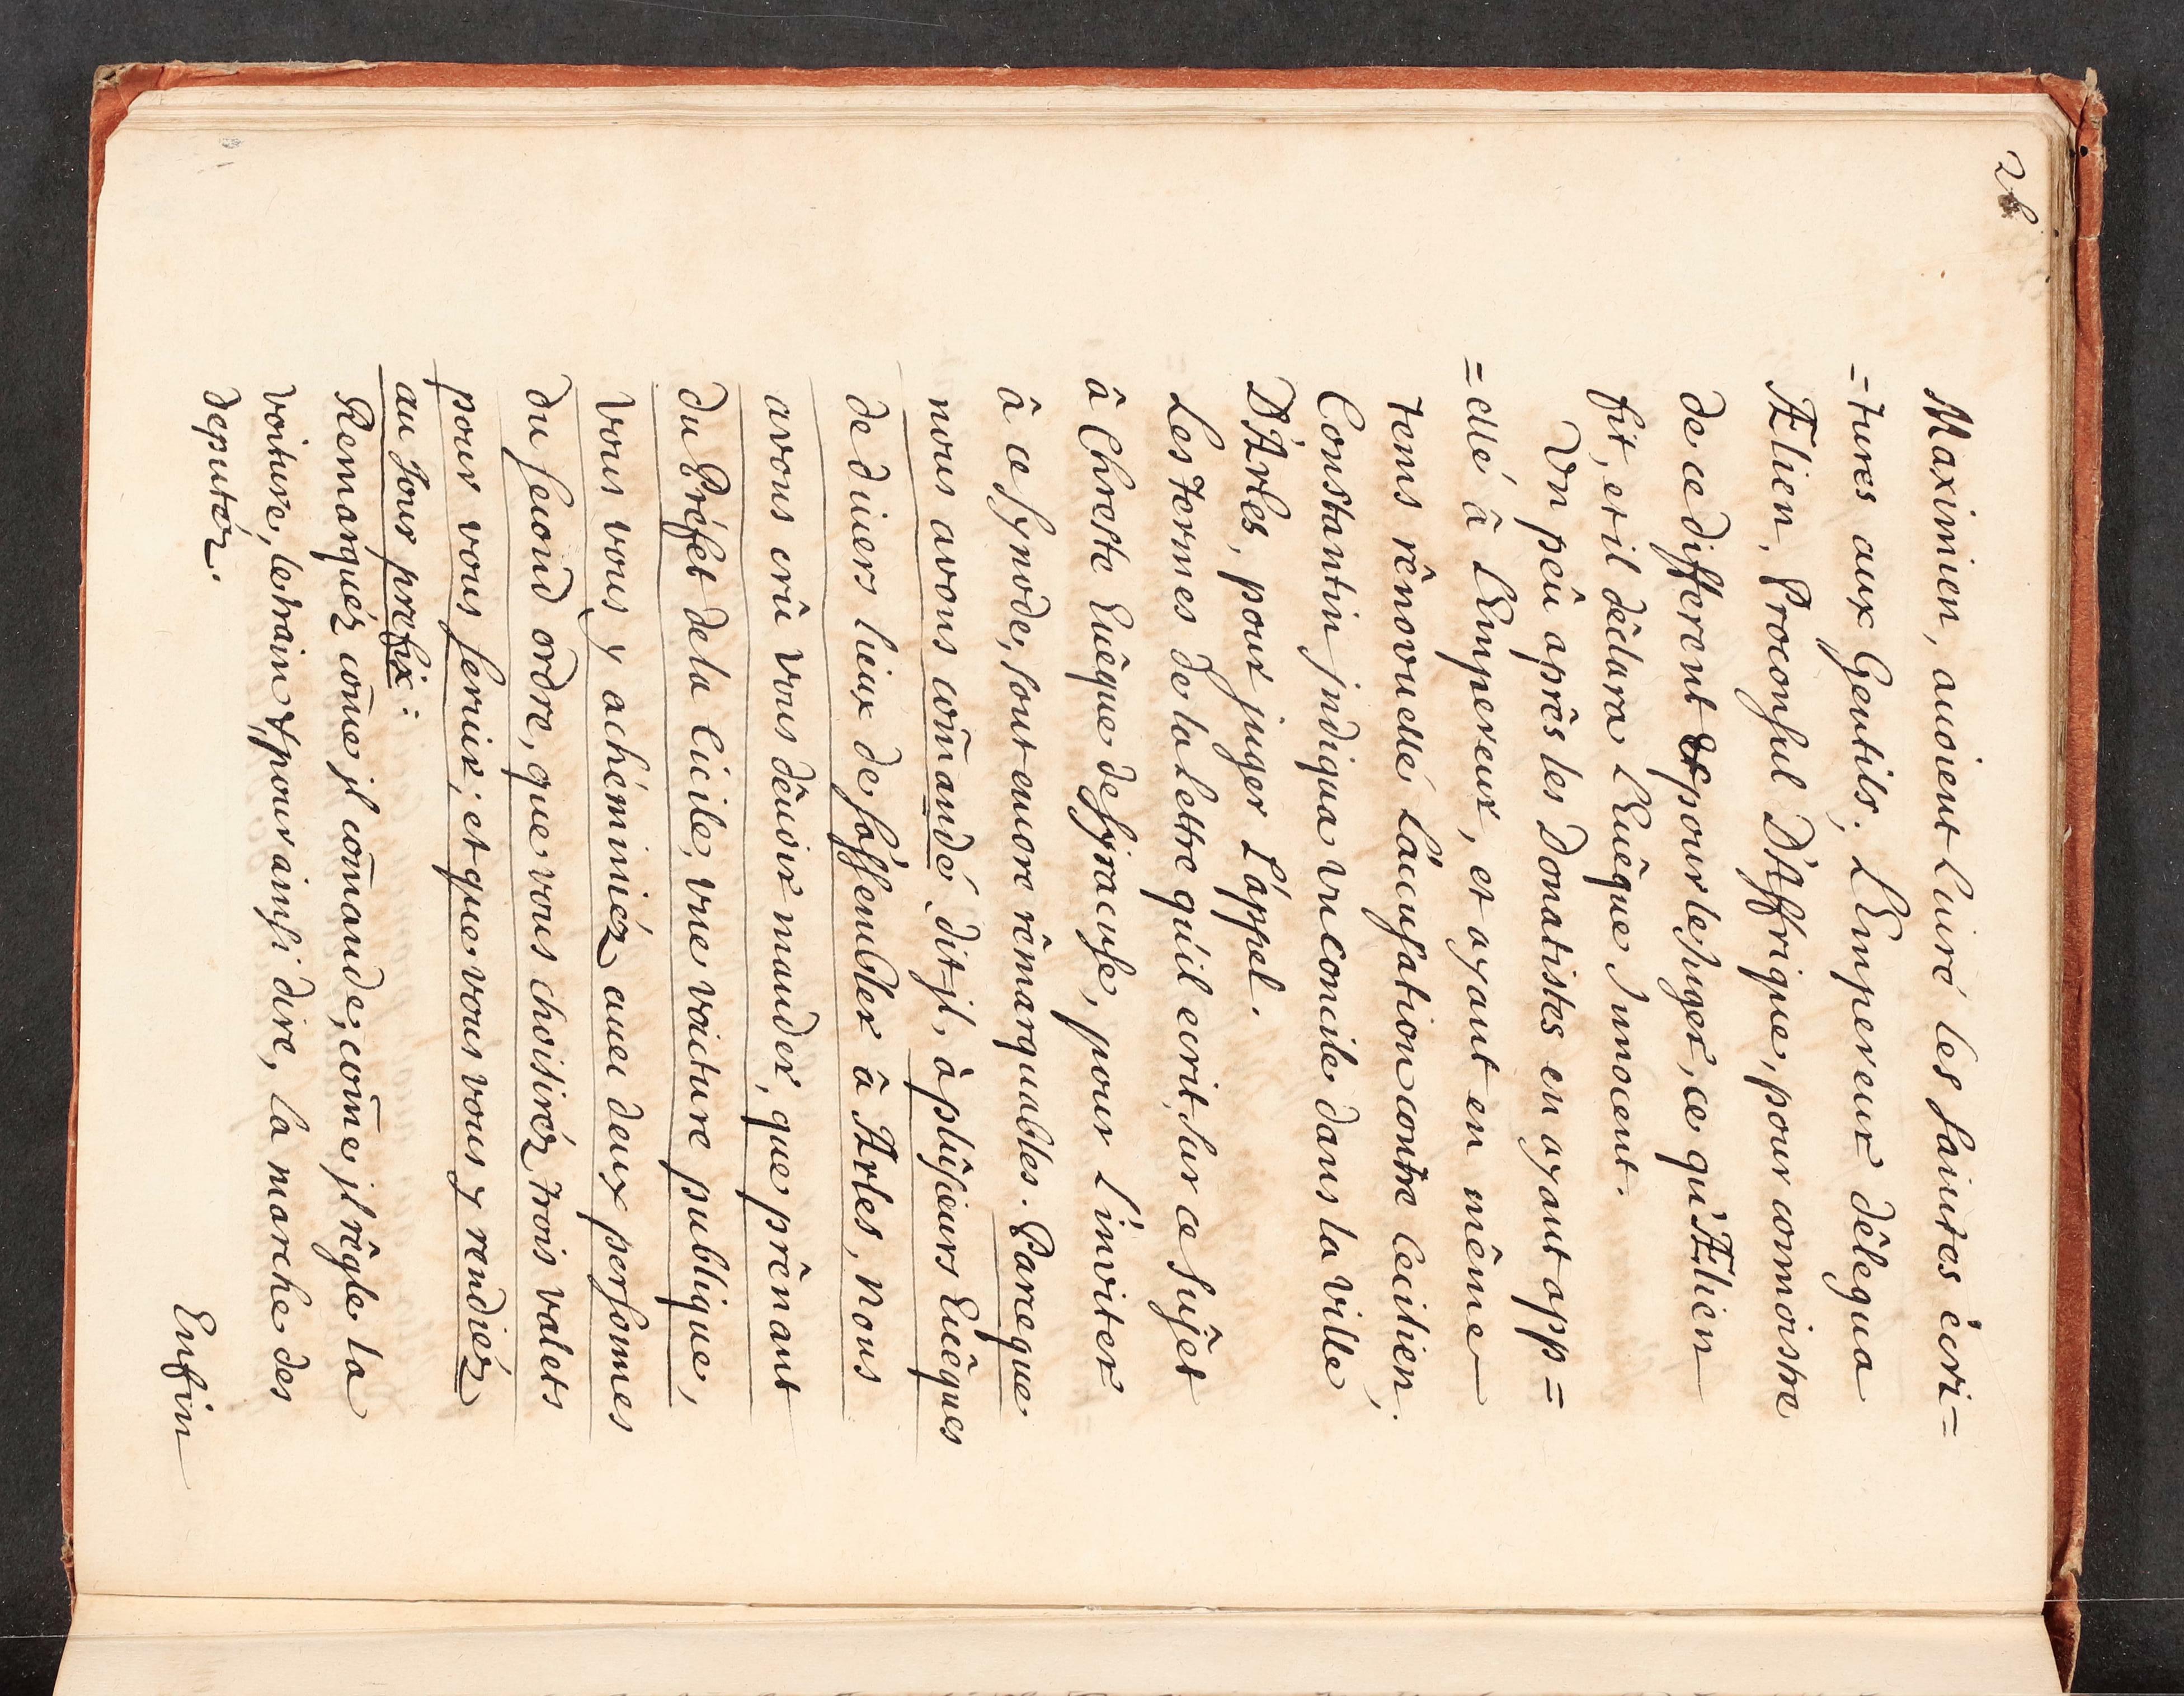 28
Maximien, auoient Liuré les saintes écri=
=tures aux Gentils; L'Empereur délegua
Ælien, Proconsul D'Affrique, pour connoistre
de ce different & pour le juger, ce qu'Ælien
fit, et il déclara L'Euêque Innocent.
Vn pêu aprês les Donatistes en ayant app=
=ellé â L'Empereur, et ayant en même
tems rênouuellé L'accusation contre Cecilien,
Constantin jndiqua vn Concile dans la Ville
D'Arles, pour juger L'áppel.
Les termes de la Lettre qu'il ecrit sur ce Sujet
â Chreste Euêque de Syracuse, pour L'inviter
â ce Synode, sont encore rêmarquables. Parceque
nous avons com̃andé, dit-jl, â plusieurs Euêques
de diuers lieux de s'assembler â Arles, Nous
avons crû vous déuoir mander, que prênant
du Préfet de la Cicile, vne voicture publique,
vous vous y achéminiéz auec deux personnes
du second ordre, que vous choisiréz, trois valets
pour vous seruir; et que vous vous y rendiéz
au Jour prefix:
Remarquéz com̃e jl com̃ande, com̃e jl rêgle la
voiture, le train & pour ainsi dire, la marche des
deputéz.
Enfin